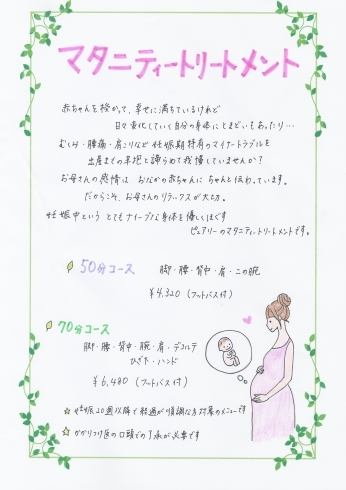 マタニティートリートメント
赤ちゃんを授かって、幸せに満ちているけれど
日々変化していく自分の身体にとまどいもあったり…
むくみ・腰痛・肩こりなど妊娠期特有のマイナートラブルを
出産までの辛抱と諦めて我慢していませんか?
お母さんの感情は おなかの赤ちゃんに ちゃんと伝わっています。
だからこそ、お母さんのリラックスが大切。
妊娠中という とてもナイーブな身体を優しくほぐす
ピュアリーのマタニティートリートメントです。
50分コース 脚・腰・背中・肩・二の腕
¥4,320 (フットバス付)
70分コース
脚・腰・背中・腕・肩・デコルテ
ひざ下・ハンド
¥6,480 (フットバス付)
☆妊娠20週以降で経過が順調な方対象のメニューです
☆かかりつけ医の口頭での了承が必要です